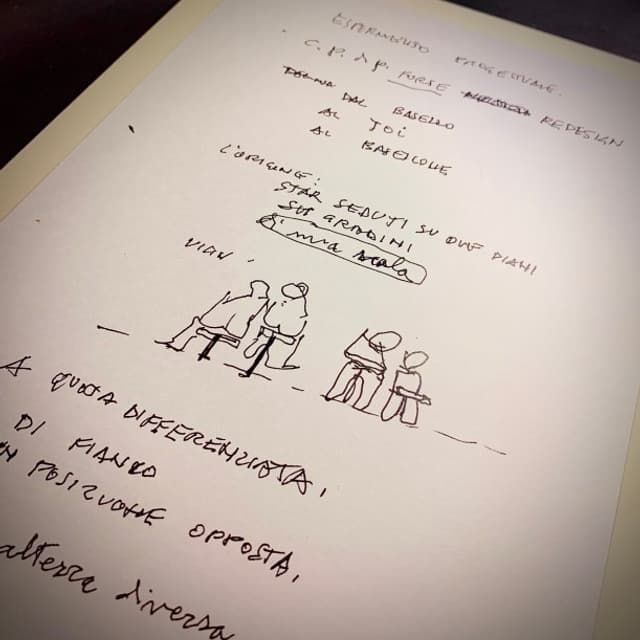 ESPERIMENTO PROGETTUALE.
C.P.d.P. FORSE REDESIGN
DAL BASELLO
AL JOI
AL BASEICONE
L'ORIGINE:
STAR SEDUTI SU DUE PIANI
SUI GRADINI
di una scala
VICINI,
A QUOTA DIFFERENZIATA,
DI FIANCO
IN POSIZIONE OPPOSTA,
altezza diversa